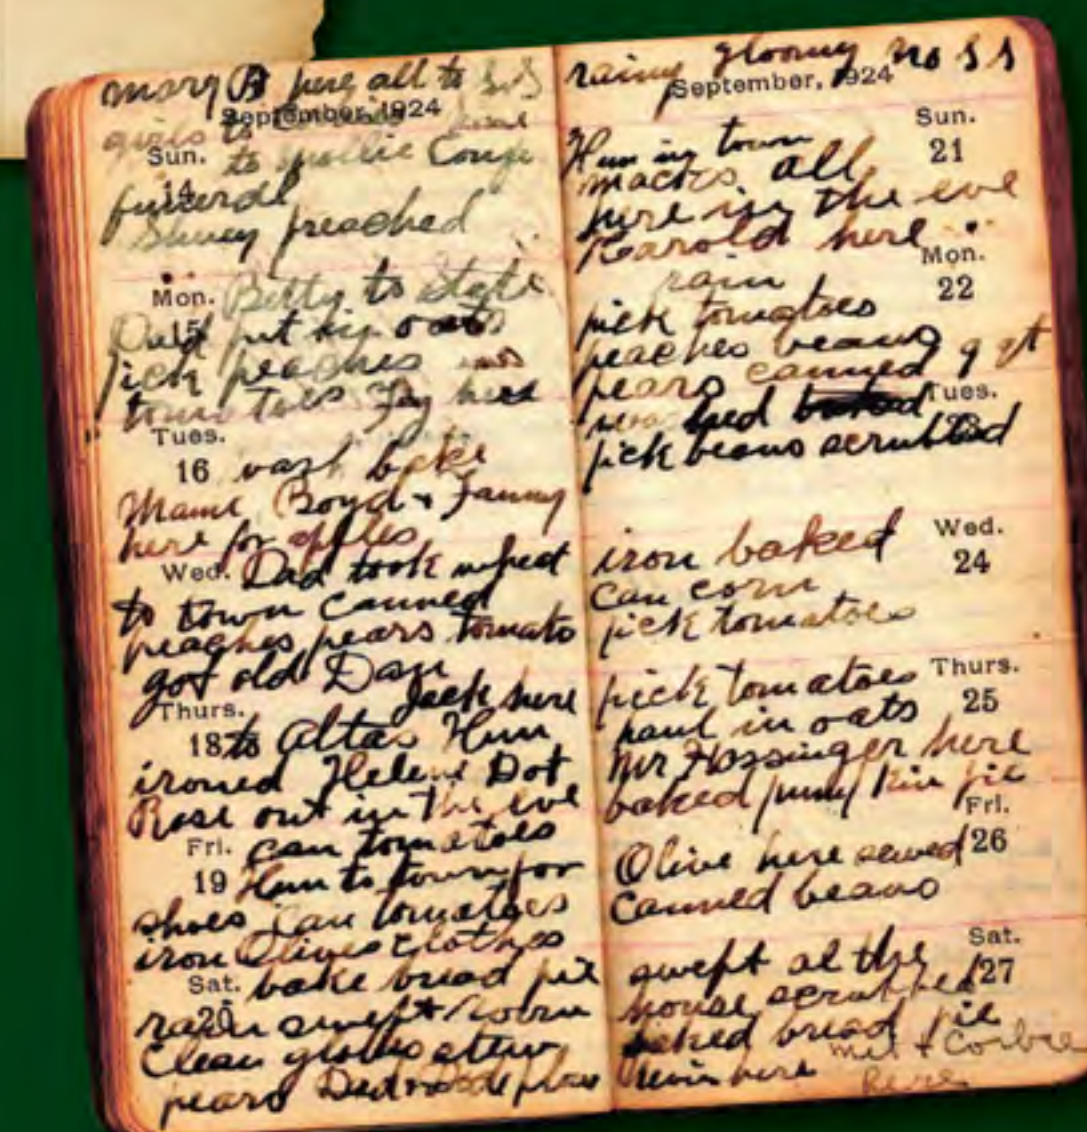 mary B here all to S S
September, 1924
girls to
Sun.
to
14
funeral
preached
Mon.
Betty to state
15
Dad put in oats
pick peaches and
tomatoes Fay here
Tues.
16 wash bake
Mame Boyd + Fanny
here for apples
Wed. Dad took wheat
to town canned
peaches pears tomato
got old Dan
Jack here
Thurs.
18 to Altas Hun
ironed Helene Dot
Rose out in the eve
Fri. can tomatoes
19 Hun to town for
shoes can tomatoes
iron Olives clothes
Sat. bake bread pie
20 swept room
Clean globes stew
pears Dad + Dode plow
rainy gloomy no S S
September, 1924
Sun.
21
Hun in town
macks all
here in the eve
Harold here
Mon.
rain
22
pick tomatoes
peaches beans
pears canned 9 qt
Tues.
pick beans scrubbed
Wed.
iron baked
24
can corn
pick tomatoes
Thurs.
pick tomatoes
25
haul in oats
Mr Hossinger here
baked pumpkin pie
Fri.
26
Olive here sewed
canned beans
Sat.
swept al the
27
house scrubbed
baked bread pie
mel + Corbie
here
here